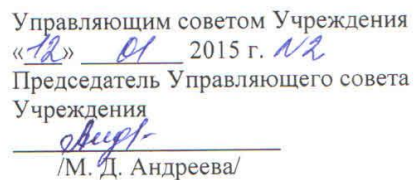 Управляющим советом Учреждения
«12» 01 2015 г. №2
Председатель Управляющего совета
Учреждения
/М. Д. Андреева/